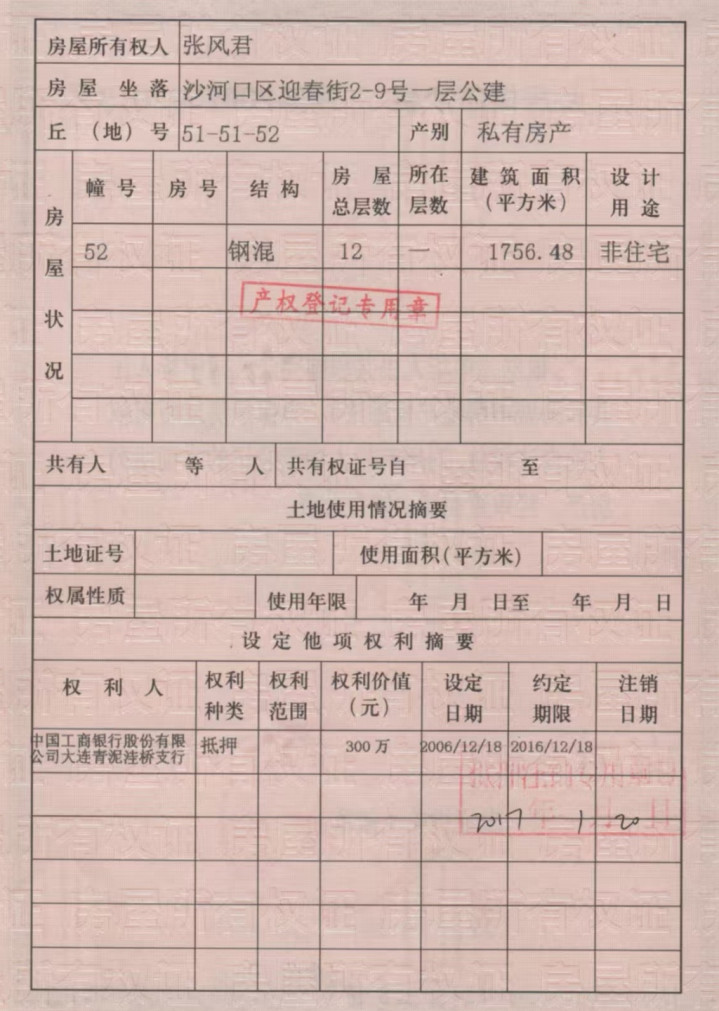 房屋所有权人 张风君
房屋坐落 沙河口区迎春街2-9号一层公建
丘（地）号 51-51-52 产别 私有房产
房屋状况
幢号 房号 结构 房屋总层数 所在层数 建筑面积（平方米） 设计用途
52 钢混 12 一 1756.48 非住宅
产权登记专用章
共有人 等 人 共有权证号自 至
土地使用情况摘要
土地证号 使用面积(平方米)
权属性质 使用年限 年 月 日至 年 月 日
设定他项权利摘要
权利人 权利种类 权利范围 权利价值（元） 设定日期 约定期限 注销日期
中国工商银行股份有限
公司大连青泥洼桥支行 抵押 300万 2006/12/18 2016/12/18
2017 年 1 月 20 日